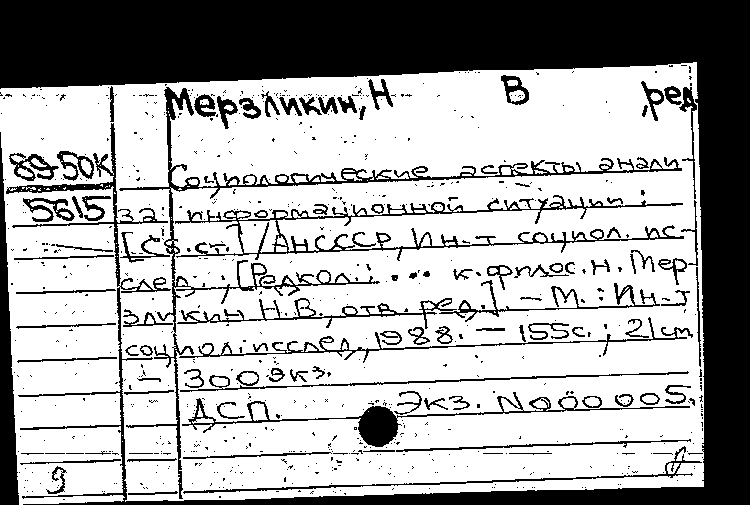 Мерзликин, Н В ,ред.
89-50К
Социологические аспекты анали-
5615
за информационной ситуации :
[Сб.ст.] / АН СССР, Ин-т социол. ис-
след. ; [Редкол.: ... к.филос.н. Мер-
зликин Н.В., отв. ред.]. - М. : Ин-т
социол. исслед., 1988. - 155с. ; 21см.
- 300экз.
ДСП. Экз. N000005.
9